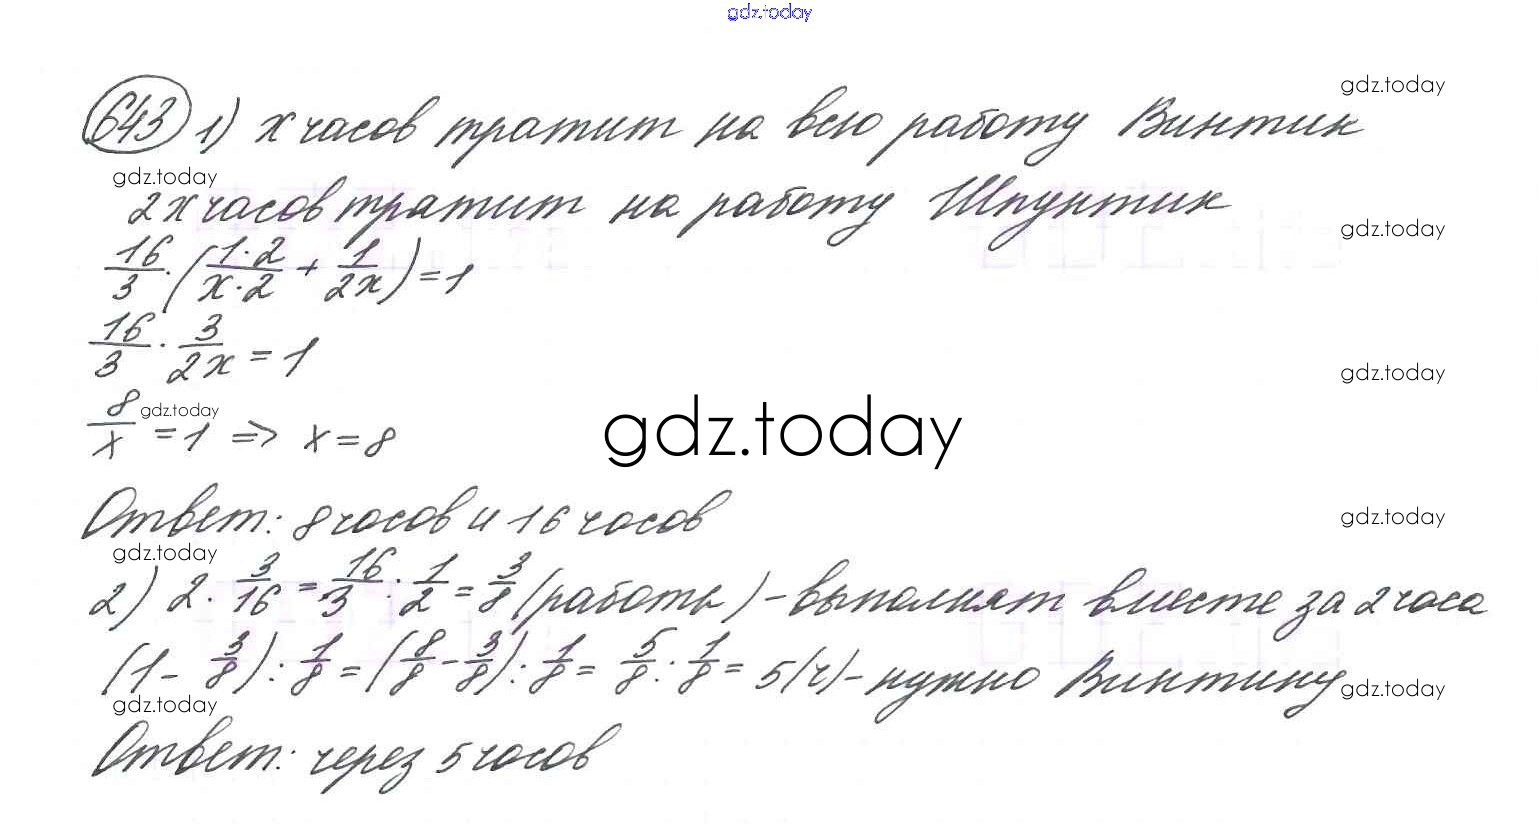 gdz.today
gdz.today
643 1) x часов тратит на всю работу Винтик
gdz.today
2x часов тратит на работу Шпунтик
gdz.today
16/3 · (1·2/x·2 + 1/2x) = 1
16/3 · 3/2x = 1
gdz.today
8/x = 1 => x = 8
gdz.today
gdz.today
Ответ: 8 часов и 16 часов
gdz.today
gdz.today
2) 2 · 3/16 = 16/3 · 1/2 = 3/8 (работы) - выполнят вместе за 2 часа
(1 - 3/8) : 1/8 = (8/8 - 3/8) : 1/8 = 5/8 : 1/8 = 5 (ч) - нужно Винтику
gdz.today
gdz.today
Ответ: через 5 часов